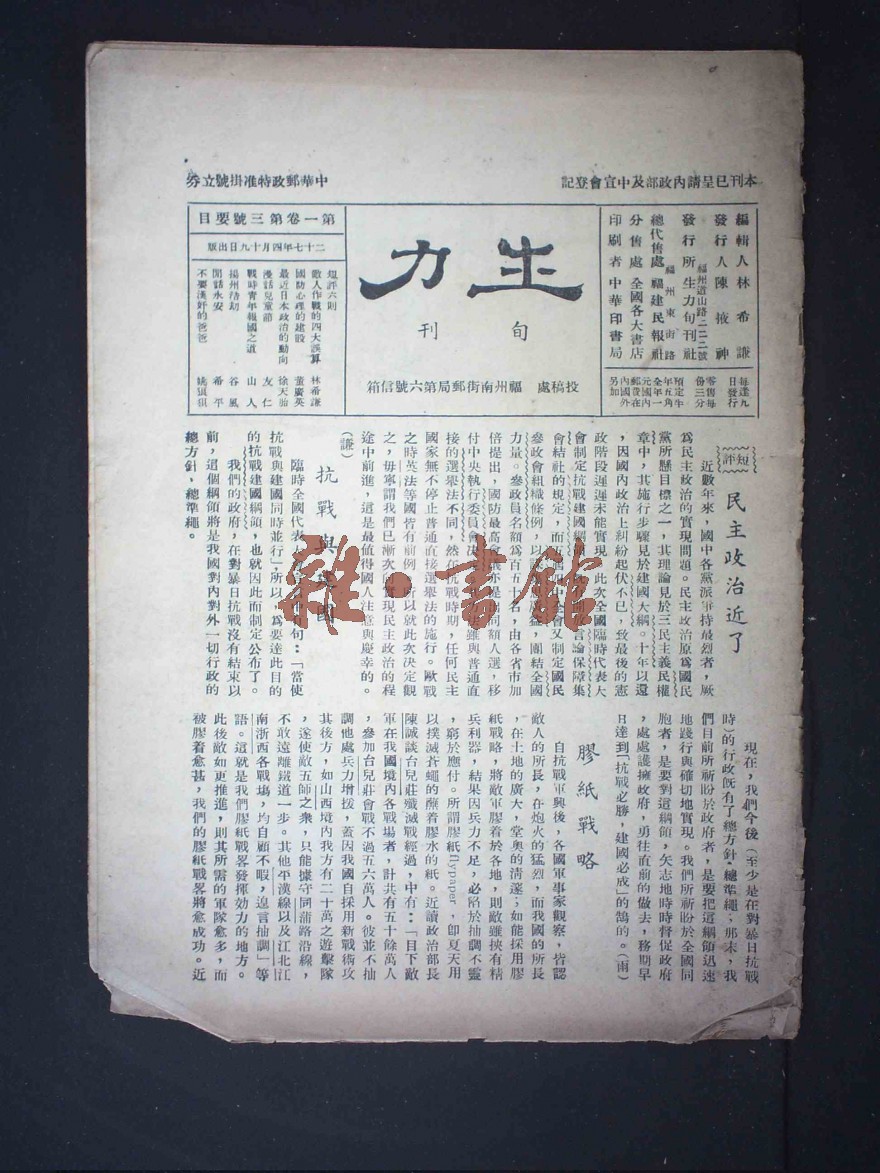 本刊已呈請內政部及中宣會登記
中華郵政特准掛號立券
編輯人林希謙
發行人陳掖神
發行所生力旬刊社
福州道山路二二二號
總代售處福建民報社
福州東街路
分售處全國各大書店
印刷者中華印書局
每逢九
日發行
零售每
份三分
預定半
年五角
全年一
元國內
郵費在
內國外
另加
生力
旬刊
投稿處 福州南街郵局第六號信箱
第一卷第三號要目
二十七年四月十九日出版
短評六則
敵人作戰的四大誤算 林希謙
國防心理的建設 董廣英
最近日本政治的動向 徐天胎
漫話兒童節 友仁
戰時青年報國之道 山人
福州浩劫 谷風
閒話永安 希平
不要漢奸的爸爸 姚狷狷
短評
民主政治近了
近數年來,國中各黨派爭持最烈者,厥
爲民主政治的實現問題。民主政治原爲國民
黨所懸目標之一,其理論見於三民主義民權
章中,其施行步驟見於建國大綱。十年以還
,因國內政治上糾紛起伏不已,致最後的憲
政階段遲遲未能實現。此次全國臨時代表大
會制定抗戰建國綱領,言論保障集
會結社的規定,而會又制定國民
參政會組織條例,以,團結全國
力量。參政員名額爲百五十名,由各省市加
倍提出,國防最高會議亦提出同額人選,移
付中央執行委員會決雖與普通直
接的選舉法不同,然在抗戰時期,任何民主
國家無不停止普通直接選舉法的施行。歐戰
之時英法等國皆有前例,所以就此次決定觀
之,毋寧謂我們已漸次向實現民主政治的程
途中前進,這是最值得國人注意與慶幸的。
(謙)
抗戰與建國
臨時全國代表句:「當使
抗戰與建國同時並行」,所以,爲要達此目的
的抗戰建國綱領,也就因此而制定公布了。
我們的政府,在對暴日抗戰沒有結束以
前,這個綱領將是我國對內對外一切行政的
總方針,總準繩。
現在,我們今後(至少是在對暴日抗戰
時)的行政既有了總方針,總準繩;那末,我
們目前所祈盼於政府者,是要把這綱領迅速
地踐行與確切地實現。我們所祈盼於全國同
胞者,是要對這綱領,矢志地時時督促政府
,處處護擁政府,勇往直前的做去,務期早
日達到「抗戰必勝,建國必成」的鵠的。(雨)
膠紙戰略
自抗戰軍興後,各國軍事家觀察,皆認
敵人的所長,在炮火的猛烈,而我國的所長
,在土地的廣大,堂奧的清邃;如能採用膠
紙戰略,將敵軍膠着於各地,則敵雖挾有精
兵利器,結果因兵力不足,必陷於抽調不靈
,窮於應付。所謂膠紙flypaper,卽夏天用
以撲滅蒼蠅的蘸着膠水的紙。近讀政治部長
陳誠談台兒莊殲滅戰經過,中有:「目下敵
軍在我國境內各戰場者,計共有五十餘萬人
,參加台兒莊會戰不過五六萬人。彼並不抽
調他處兵力增援,蓋因我國自採用新戰術攻
其後方,如山西境內我方有二十萬之遊擊隊
,遂使敵五師之衆,只能據守同蒲路沿線,
不敢遠離鐵道一步。其他平漢線以及江北江
南浙西各戰場,均自顧不暇,遑言抽調」等
語。這就是我們膠紙戰畧發揮効力的地方。
此後敵如更推進,則其所需的軍隊愈多,而
被膠着愈甚,我們的膠紙戰畧將愈成功。近
雜·書館